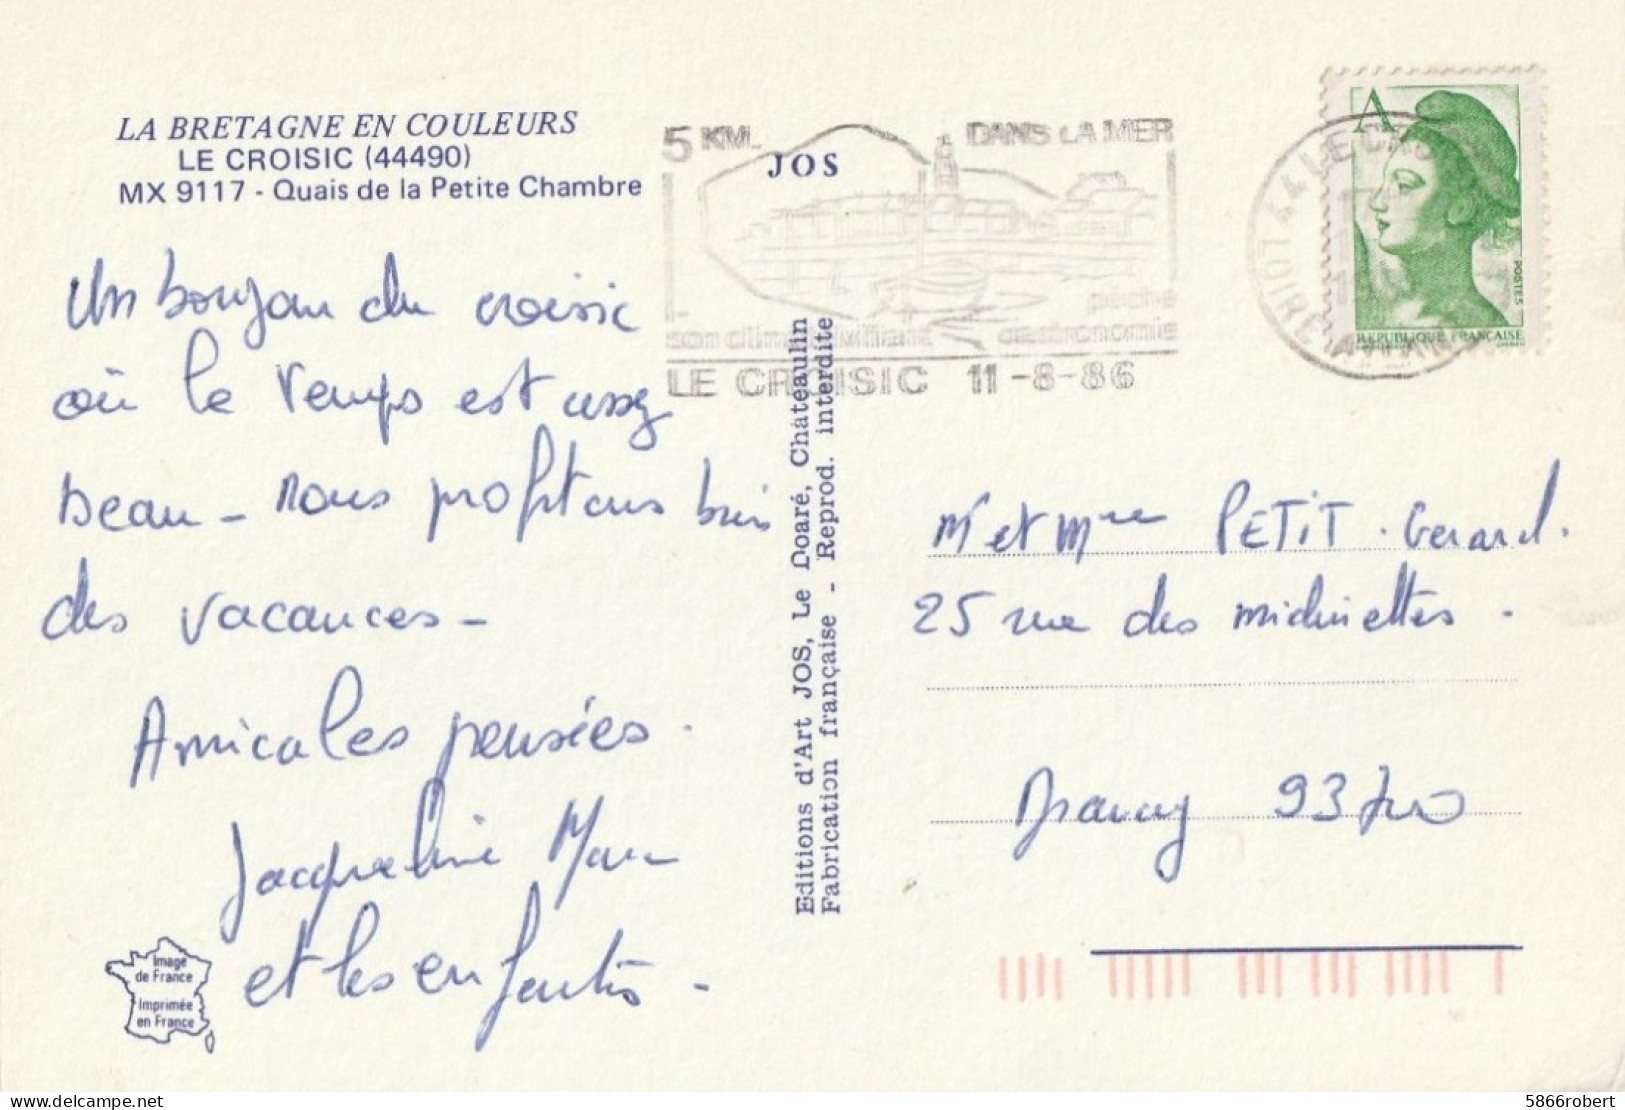 LA BRETAGNE EN COULEURS
LE CROISIC (44490)
MX 9117 - Quais de la Petite Chambre
5 KM. DANS LA MER
JOS
pêche
gastronomie
LE CROISIC 11-8-86
44 LE CROISIC
LOIRE ATLANT
A
POSTES
REPUBLIQUE FRANÇAISE
Un bonjour du croisic
où le temps est assez
beau - nous profitons bien
des vacances -
Amicales pensées.
Jacqueline Marc
et les enfants -
Editions d'Art JOS, Le Doaré, Châteaulin
Fabrication française - Reprod. interdite
Mr et Mme PETIT. Gerard.
25 rue des midinettes.
Drancy 93700
Image
de France
Imprimée
en France
5866robert